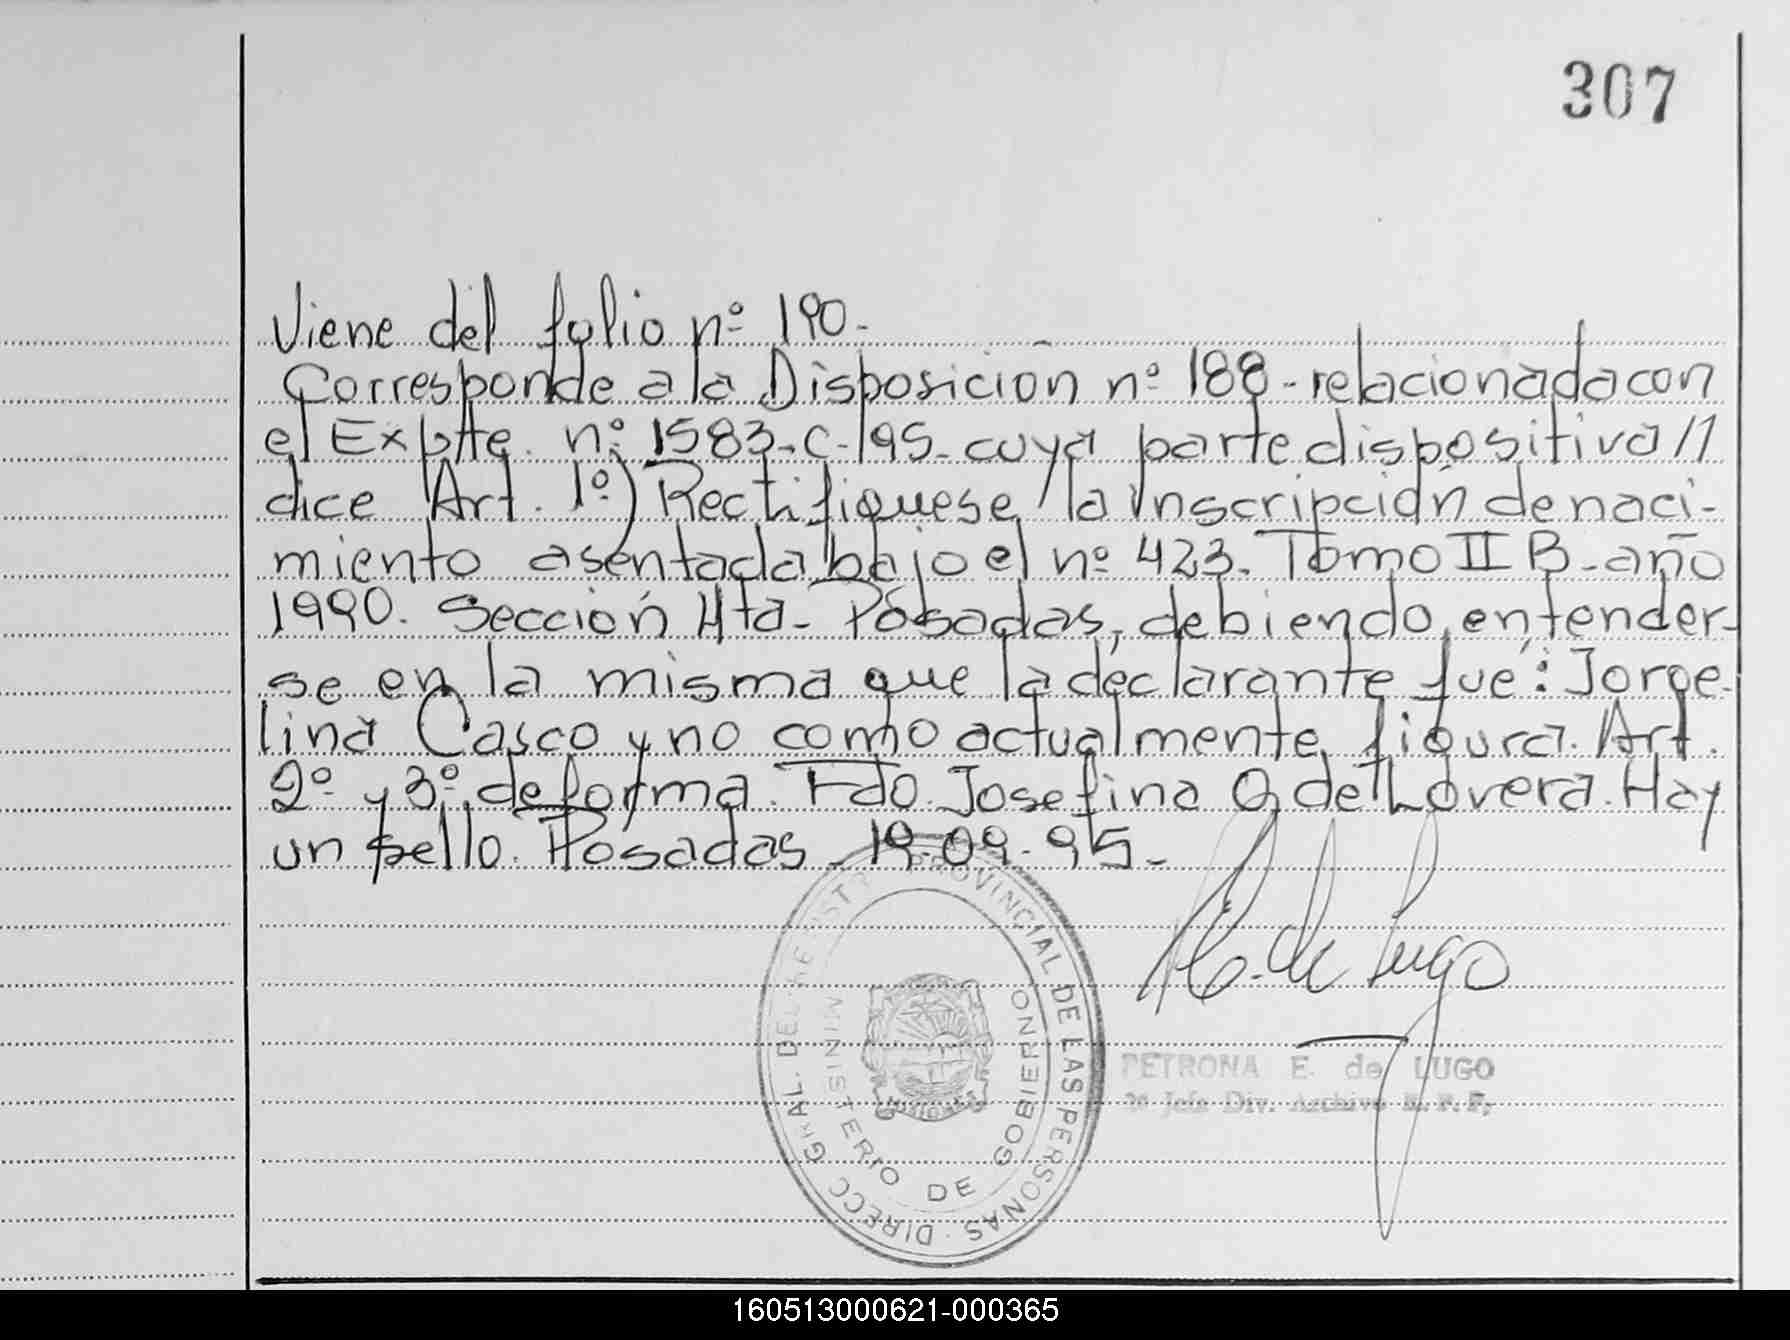 307
Viene del folio nº 190.
Corresponde a la Disposición nº 188-relacionada con
el Expte. nº 1583-C-95- cuya parte dispositiva //
dice Art. 1º) Rectifiquese la inscripción de naci-
miento asentada bajo el nº 423. Tomo II B- año
1990. Sección 4ta- Posadas, debiendo entender-
se en la misma que la declarante fue: Jorge-
lina Casco y no como actualmente figura. Art.
2º y 3º de forma. Fdo. Josefina Q de Lovera. Hay
un sello. Posadas - 19-09-95-
DIRECC GRAL. DEL REGIST PROVINCIAL DE LAS PERSONAS.
MINISTERIO DE GOBIERNO
MISIONES
de Lugo
PETRONA E. de LUGO
2º Jefe Div. Archivo R. P. P.
160513000621-000365